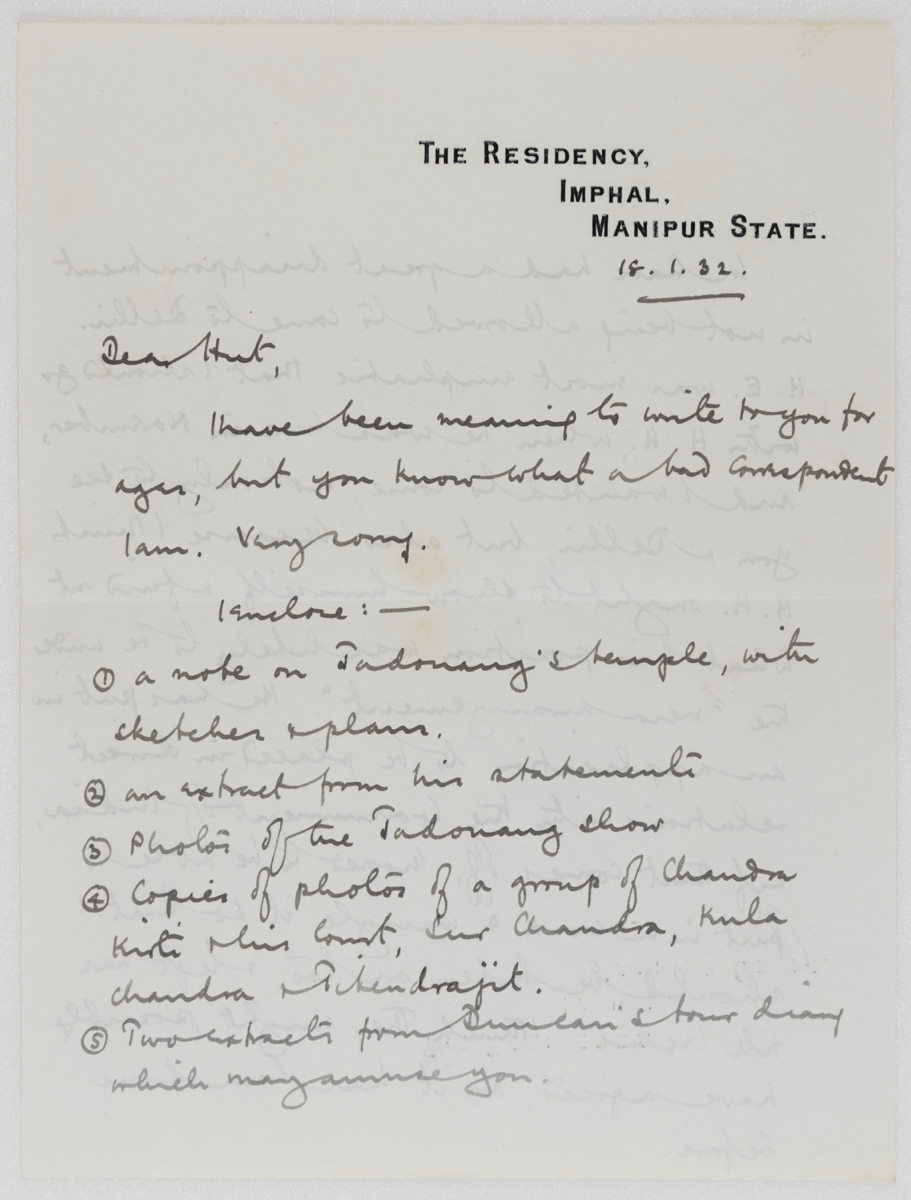 THE RESIDENCY,
IMPHAL,
MANIPUR STATE.
18. 1. 32.
Dear Hut,
I have been meaning to write to you for
ages, but you know what a bad correspondent
I am. Very sorry.
I enclose: —
① a note on Jadonang's temple, with
sketches & plans.
② an extract from his statements
③ Photos of the Jadonang show
④ Copies of photos of a group of Chandra
Kirti & his Court, Sur Chandra, Kula
Chandra & Tikendrajit.
⑤ Two extracts from Duncan's tour diary
which may amuse you.